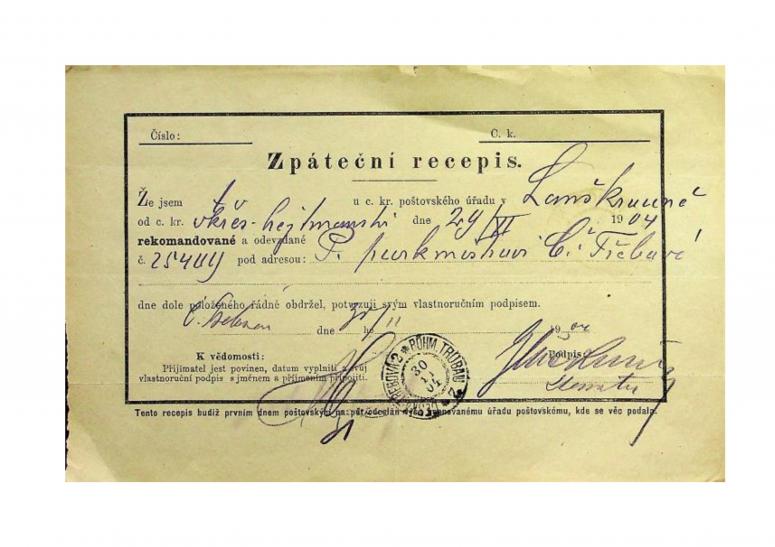 Číslo: C. k.
Zpáteční recepis.
Že jsem u c. kr. poštovského úřadu v Lanškrouně
od c. kr. okres. hejtmanství dne 29/XI 1904
rekomandované a odevzdané
č. 25409 pod adresou: P. purkmistrovi Č. Třebová
dne dole položeného řádně obdržel, potvrzuji svým vlastnoručním podpisem.
dne ho 1904
K vědomosti: Podpis:
Přijímatel jest povinen, datum vyplniti a svůj
vlastnoruční podpis s jménem a příjmením připojiti.
BÖHM. TRÜBAU 2
TŘEBOVÁ 2
30
04
Tento recepis budiž prvním dnem poštovským úřadu poštovskému, kde se věc podala.